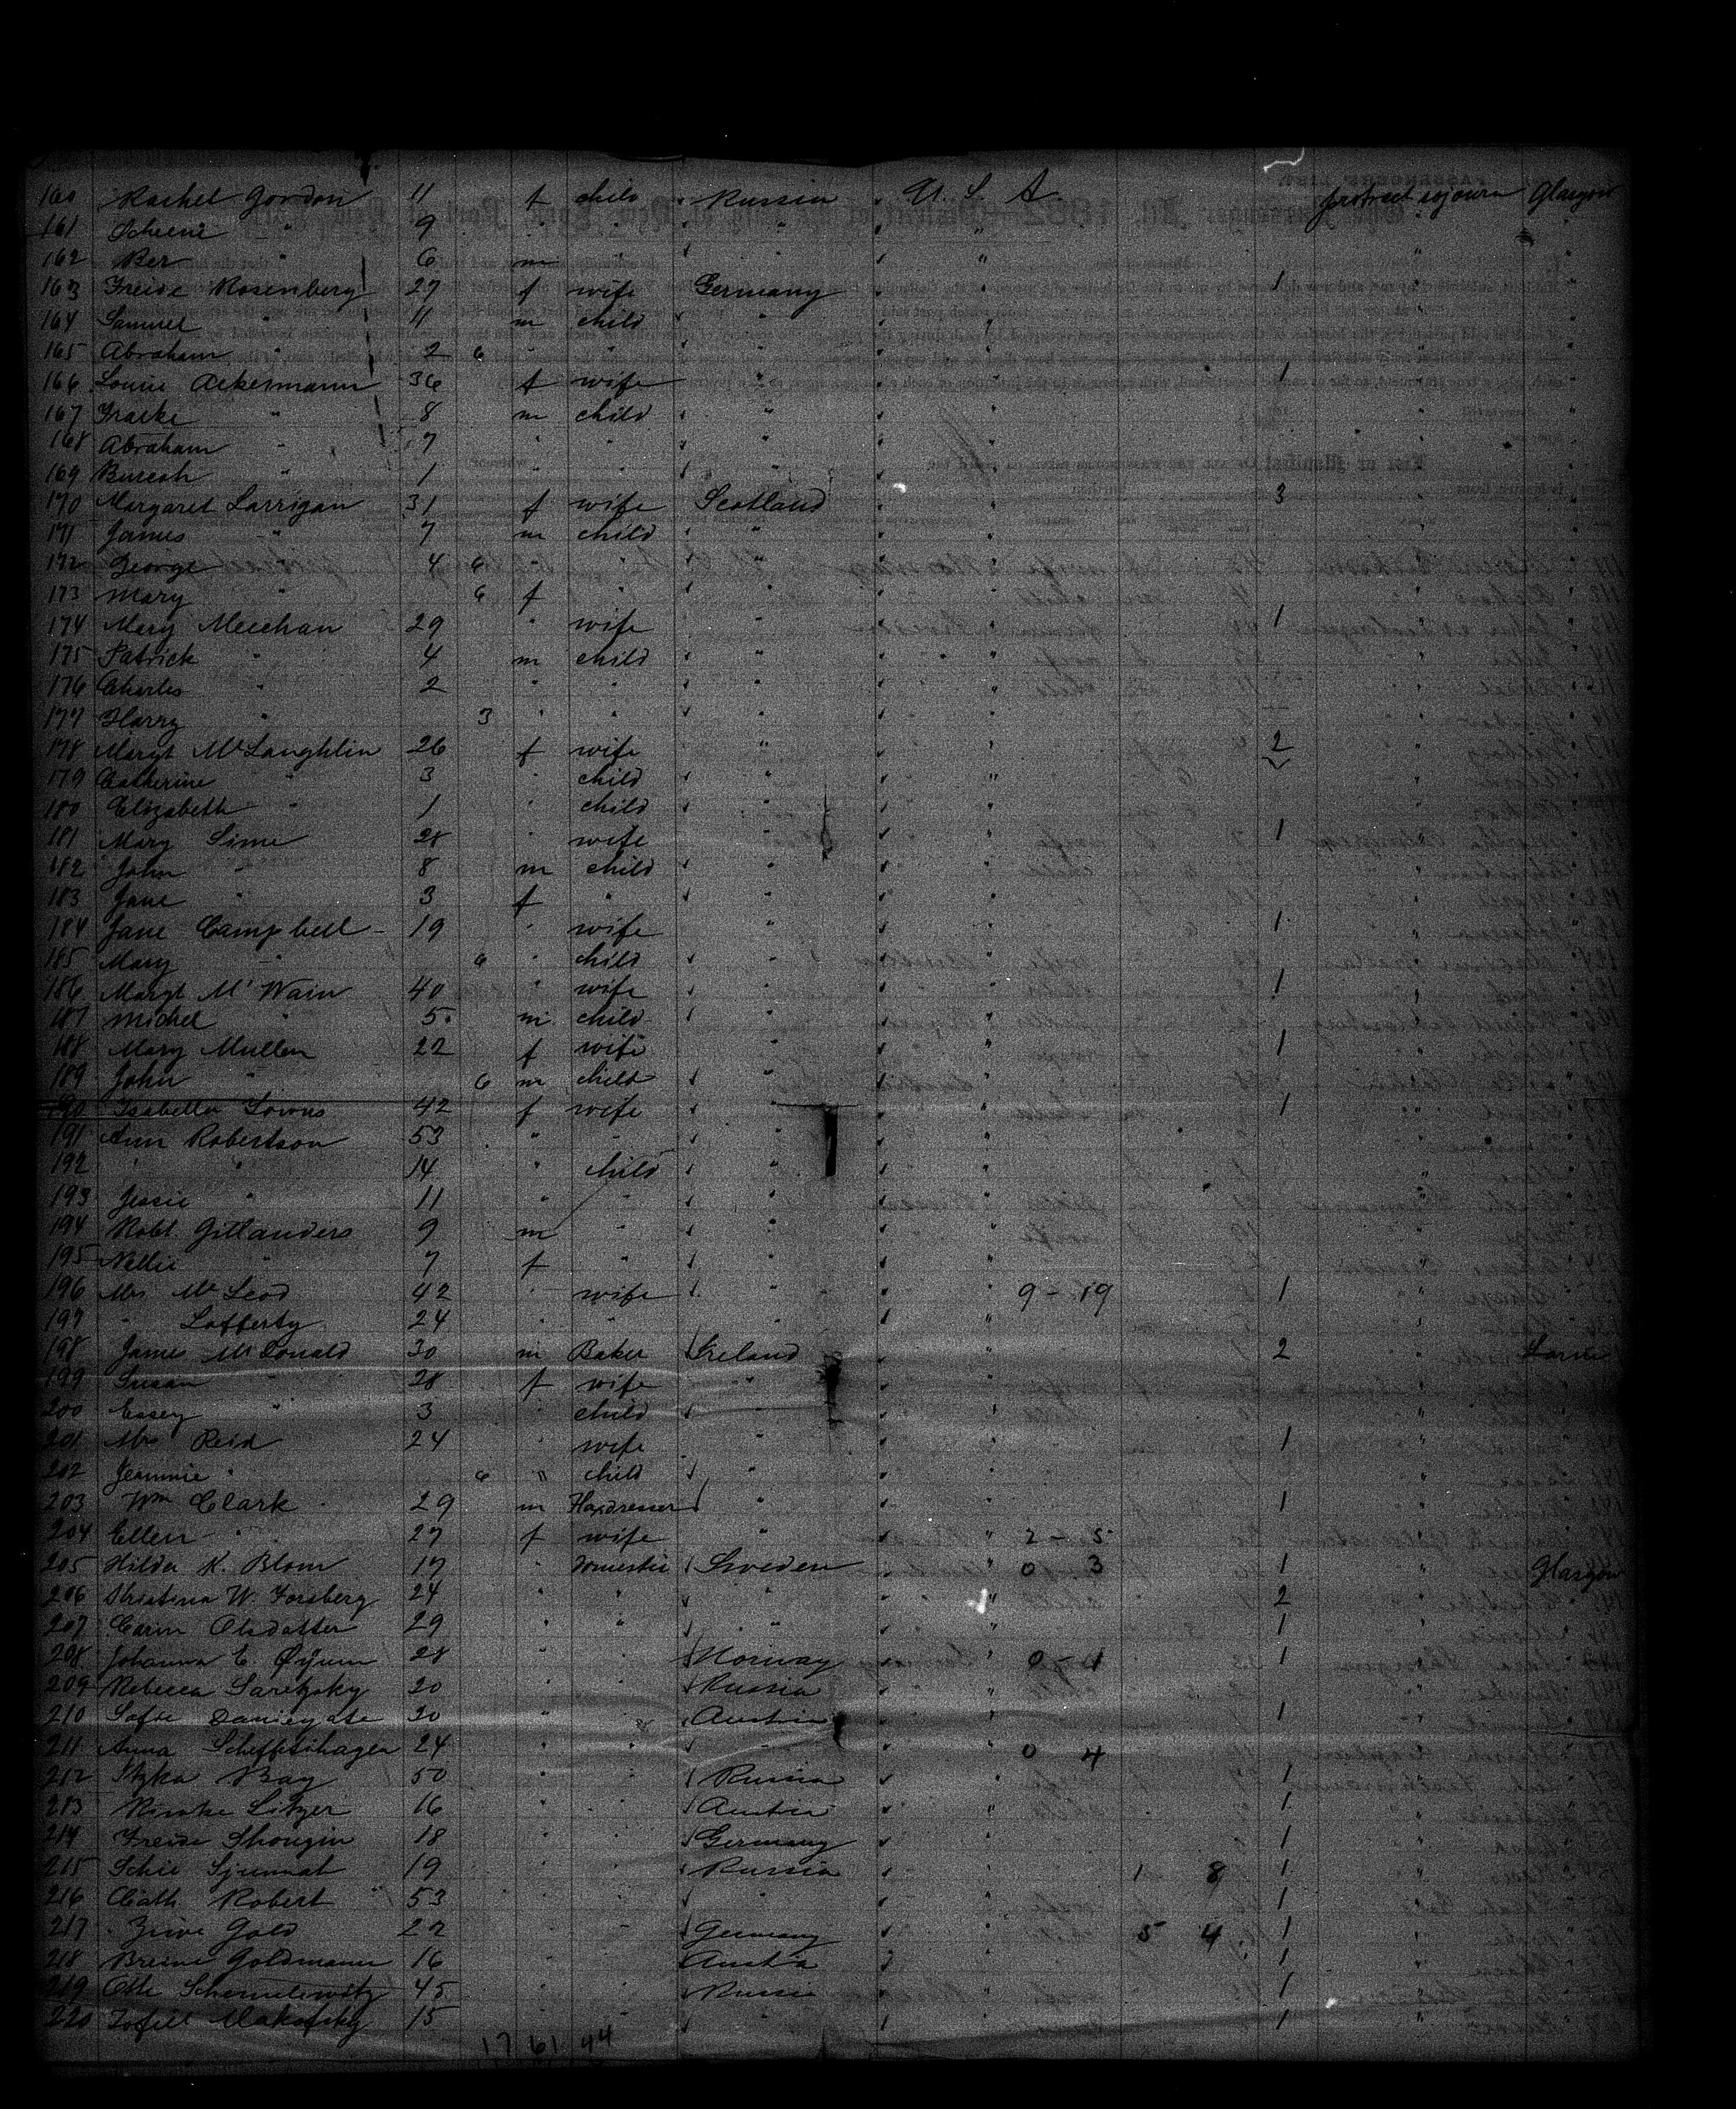 160 Rachel Gordon 11 f child Russia U. S. A. protract sojourn Glasgow
161 " 9 " " " "
162 Ber " 6 m " " "
163 Freide Rosenberg 27 f wife Germany " 1 "
164 Samuel " 11 m child " " "
165 Abraham " 2 6 " " " " "
166 Louise Ackermann 36 f wife " " 1 "
167 " 8 m child " " "
168 Abraham " 7 " " " " "
169 " 1 " " " " "
170 Margaret Larrigan 31 f wife Scotland " 3 "
171 James " 7 m child " " "
172 George " 4 6 " " " " "
173 Mary " 6 f " " " "
174 Mary Meechan 29 " wife " " 1 "
175 Patrick " 4 m child " " "
176 Charles " 2 " " " " "
177 Harry " 3 " " " " "
178 Margt McLaughlin 26 f wife " " 2 "
179 Catherine " 3 " child " " "
180 Elizabeth " 1 " child " " "
181 Mary Sime 28 " wife " " 1 "
182 John " 8 m child " " "
183 Jane " 3 f " " " "
184 Jane Campbell 19 " wife " " 1 "
185 Mary " 6 " child " " "
186 Margt M'Wain 40 " wife " " 1 "
187 Michel " 5 m child " " "
188 Mary Mullen 22 f wife " " 1 "
189 John " 6 m child " " "
190 Isabella 42 f wife " " 1 "
191 Ann Robertson 53 " " " " "
192 " " 14 " child " " "
193 Jessie " 11 " " " " "
194 Robt Gillanders 9 m " " " "
195 Nellie " 7 f " " " "
196 Mrs McLeod 42 " wife " " 9 - 19 1 "
197 " Lafferty 24 " " " " "
198 James McDonald 30 m Baker Ireland " 2 " Larne
199 Susan " 28 f wife " " "
200 " 3 " child " " "
201 Mrs Reid 24 " wife " " 1 "
202 Jeannie " 6 " child " " "
203 Wm Clark 29 m " " 1 "
204 Ellen " 27 f wife " " 2 - 5 "
205 Hilda K. Blom 17 " Domestic Sweden " 0 3 1 " Glasgow
206 Christina W. Forsberg 24 " " " " 2 "
207 Carin Olsdatter 29 " " " " 1 "
208 Johanna E. Øijum 28 " " Norway " 0 - 1 1 "
209 Rebecca Saretzsky 20 " " Russia " "
210 30 " " Austria " 1 "
211 Anna 24 " " " " 0 4 "
212 Bay 50 " " Russia " 1 "
213 16 " " Austria " 1 "
214 Freide 18 " " Germany " 1 "
215 19 " " Russia " 1 8 1 "
216 Cath Robert 53 " " " " 1 "
217 Gold 22 " " Germany " 5 4 1 "
218 Breine Goldmann 16 " " Austria " 1 "
219 45 " " Russia " 1 "
220 15 " " " " 1 "
17 61 44